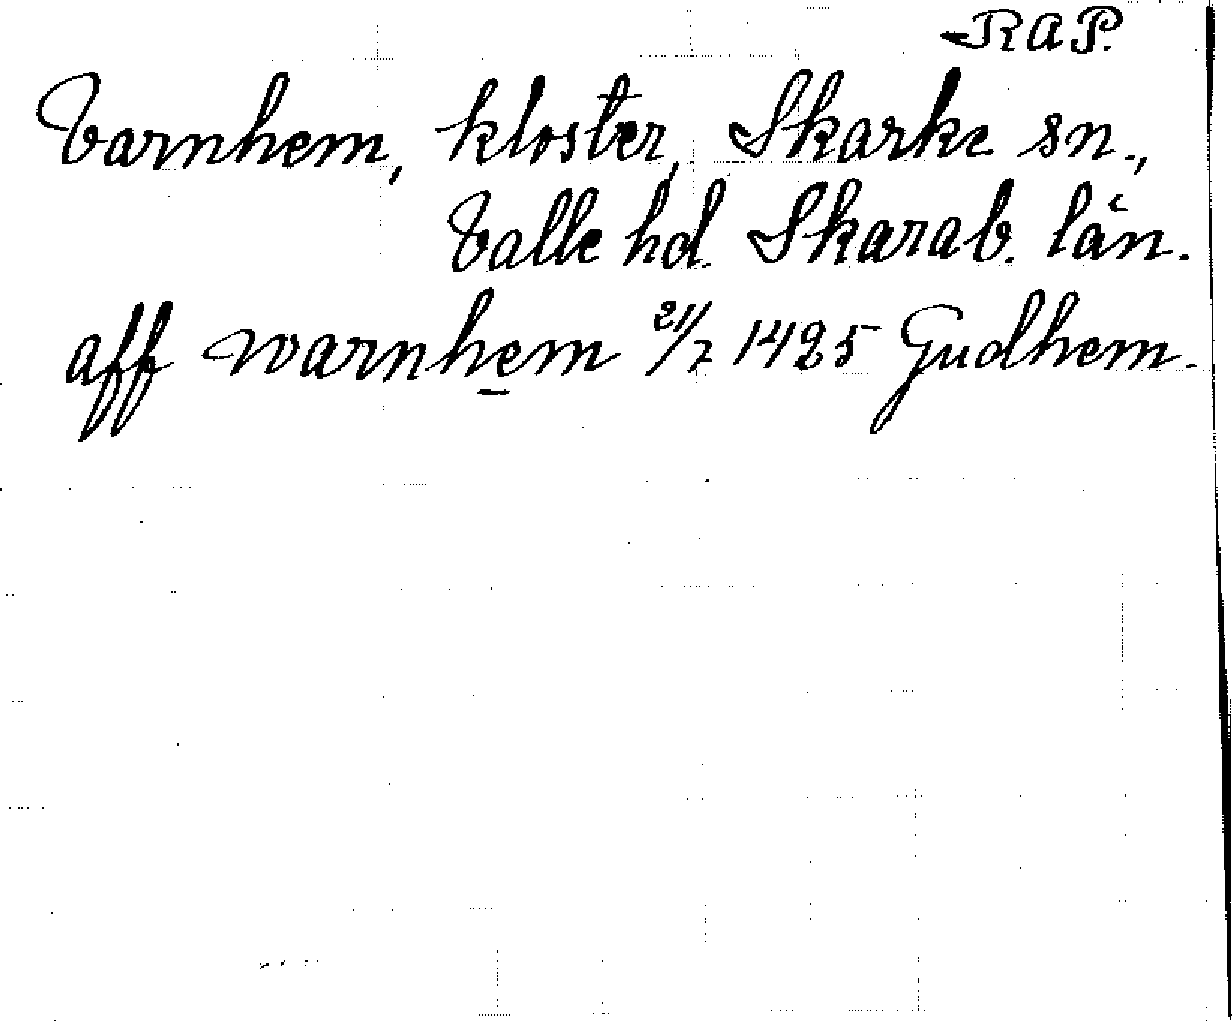 RAP.
Varnhem, kloster, Skarke sn.,
Valle hd. Skarab. län.
aff warnhem 21/7 1425 Gudhem.